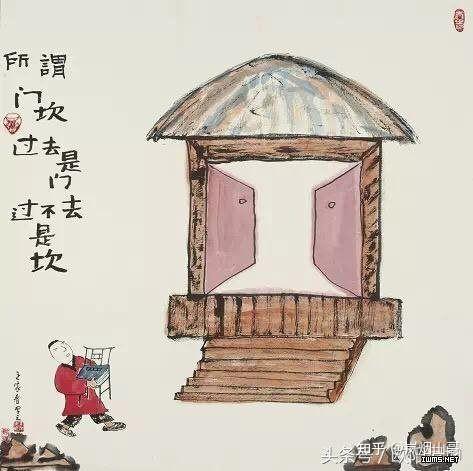 所謂
门坎
过去是门
过不去是坎
知乎
头条号/
iWMS.net